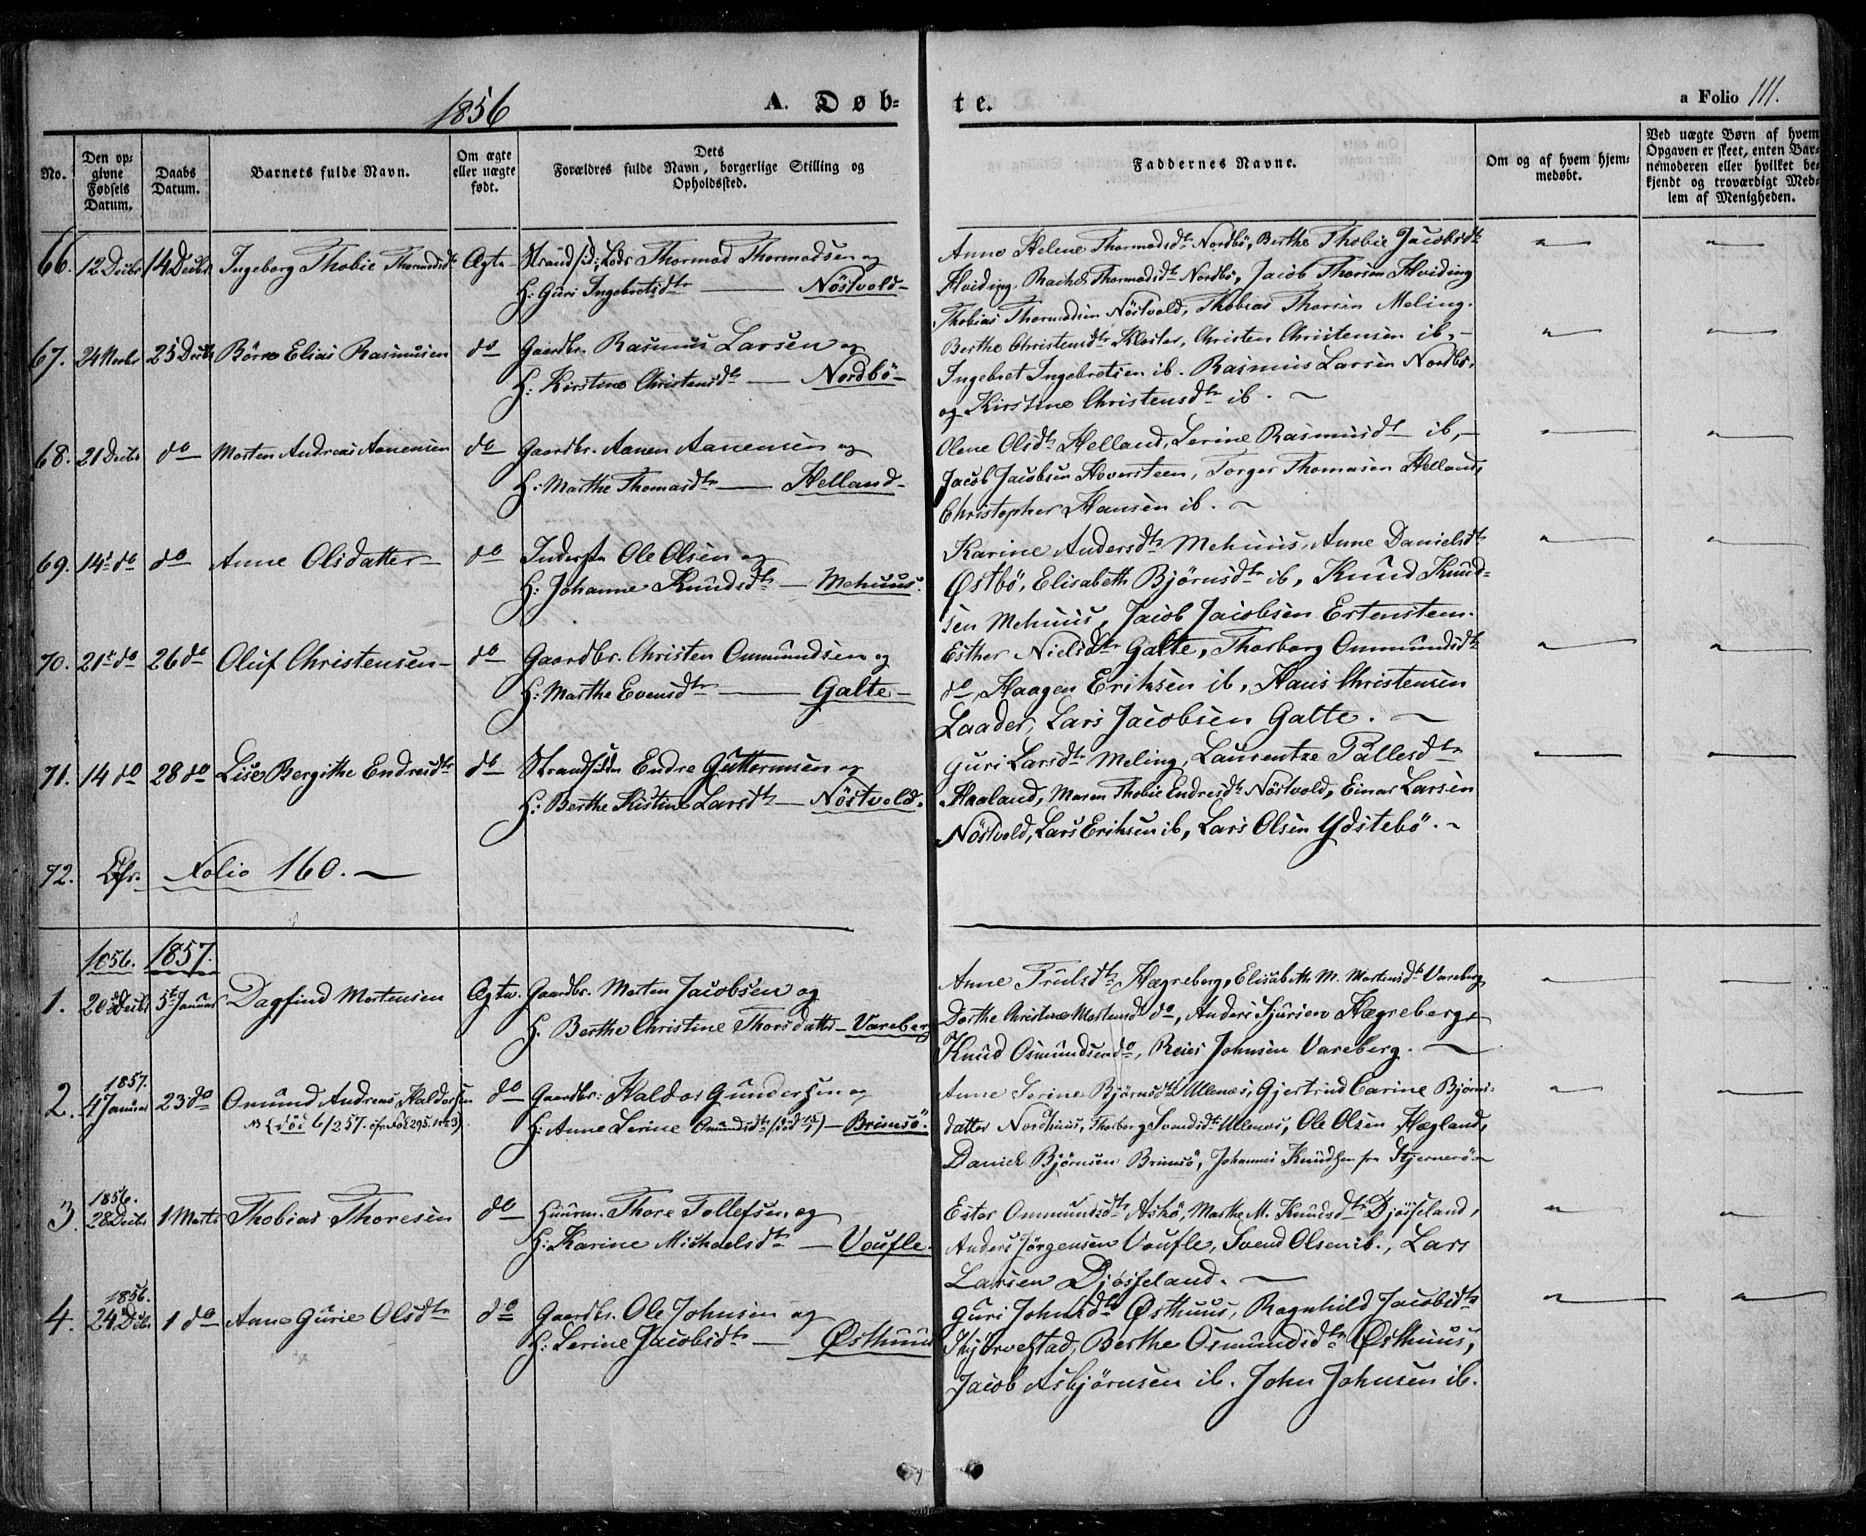 1856 A. Døb- te. a Folio 111.
No. Den op- givne Fødsels Datum. Daabs Datum. Barnets fulde Navn. Om ægte eller uægte født. Dets Forældres fulde Navn, borgerlige Stilling og Opholdssted. Faddernes Navne. Om og af hvem hjem- medøbt. Ved uægte Børn af hvem Opgaven er skeet, enten Bar- nemoderen eller hvilket be- kjendt og troværdigt Med- lem af Menigheden.
66. 12 Decbr 14 Decbr Ingeborg Thobie Thormodsdt Ægte Strandsid; Lods Thormod Thormodsen og
H: Guri Ingebretsdtr — Nöstvold —
Anne Helene Thormodsdtr Nordbö, Berthe Thobie Jacobsdtr
Hviding, Rachel Thormodsdtr Nordbö, Jacob Thorsen Hviding
Thobias Thormodsen Nöstvold, Thobias Thorsen Meling.
67. 24 Novbr 25 Decbr Börre Elias Rasmusen do Gaardbr. Rasmus Larsen og
H: Kirstine Christensdtr — Nordbö —
Berthe Christensdtr Kloster, Christen Christensen ib, —
Ingebret Ingebretsen ib. Rasmus Larsen Nordbö,
og Kirstine Christensdtr ib. —
68. 21 Decbr do Morten Andreas Aanensen do Gaardbr. Aanen Aanensen og
H: Marthe Thomasdtr — Helland —
Olene Olsdtr Helland, Serine Rasmusdtr ib, —
Jacob Jacobsen Hoversteen, Torger Thomasen Helland,
Christopher Hansen ib. —
69. 14de do do Anne Olsdatter — do Inderst Ole Olsen og
H: Johanne Knudsdtr — Mehuus.
Karine Andersdtr Mehuus, Anne Danielsdtr
Østbö, Elisabeth Björnsdtr ib, Knud Knud-
sen Mehuus, Jacob Jacobsen Ertensten.
70. 21de do 26 do Oluf Christensen — do Gaardbr. Christen Ommundsen og
H: Marthe Evensdtr — Galte —
Esther Nielsdtr Galte, Thorborg Ommundsdtr
do, Haagen Eriksen ib, Hans Christensen
Laader, Lars Jacobsen Galte. —
71. 14 do 28 do Lise Bergithe Endresdtr do Strandsidr Endre Guttormsen og
H: Berthe Kistine Larsdtr — Nöstvold.
Guri Larsdtr Meling, Laurentze Pallesdtr
Haaland, Maren Thobie Endresdtr Nöstvold, Einar Larsen
Nöstvold, Lars Eriksen ib, Lars Olsen Ydstebö. —
72. Cfr. Folio 160. —
1856. 1857.
1. 20de Decbr 5te Januar Dagfind Mortensen Ægte Gaardbr. Morten Jacobsen og
H. Berthe Christine Thorsdatter — Vareberg
Anne Trulsdtr Hægreberg, Elisabeth M. Mortensdtr Vareberg
Dorthe Christine Mortensdtr do, Anders Sjursen Hægreberg,
Knud Osmundsen do, Reier Johnsen Vareberg. —
1857.
2. 4 Januar 23 do Omund Andreas Haldorsen do Gaardbr: Haldor Gundersen og
NB (död 6/2 57. cfr. Fol 295. No 3) H: Anne Serine Omundsdtr — Brimsö.
Anne Serine Björnsdtr Ulenes, Gjertrud Carine Björns-
datter Nordhuus, Thorborg Svendsdtr Ulenes, Ole Olsen Hægland,
Daniel Björnsen Brimsö, Johannes Knudsen fra Stjernerö —
1856.
3. 28 Decbr 1 Marts Thobias Thoresen do Huusm. Thore Tollefsen og
H: Karine Michaelsdtr — Voufle.
Ester Ommundsdtr Askö, Marthe M. Knudsdtr Djösseland,
Anders Jörgensen Voufle, Svend Olsen ib., Lars
Larsen Djösseland. —
1856.
4. 24 Decbr 1 do Anne Gurie Olsdtr do Gaardbr. Ole Johnsen og
H: Serine Jacobsdtr — Østhuus
Guri Johnsdtr Østhuus, Ragnhild Jacobsdtr
Skjörvestad, Berthe Osmundsdtr Østhuus,
Jacob Asbjörnsen ib. John Johnsen ib.